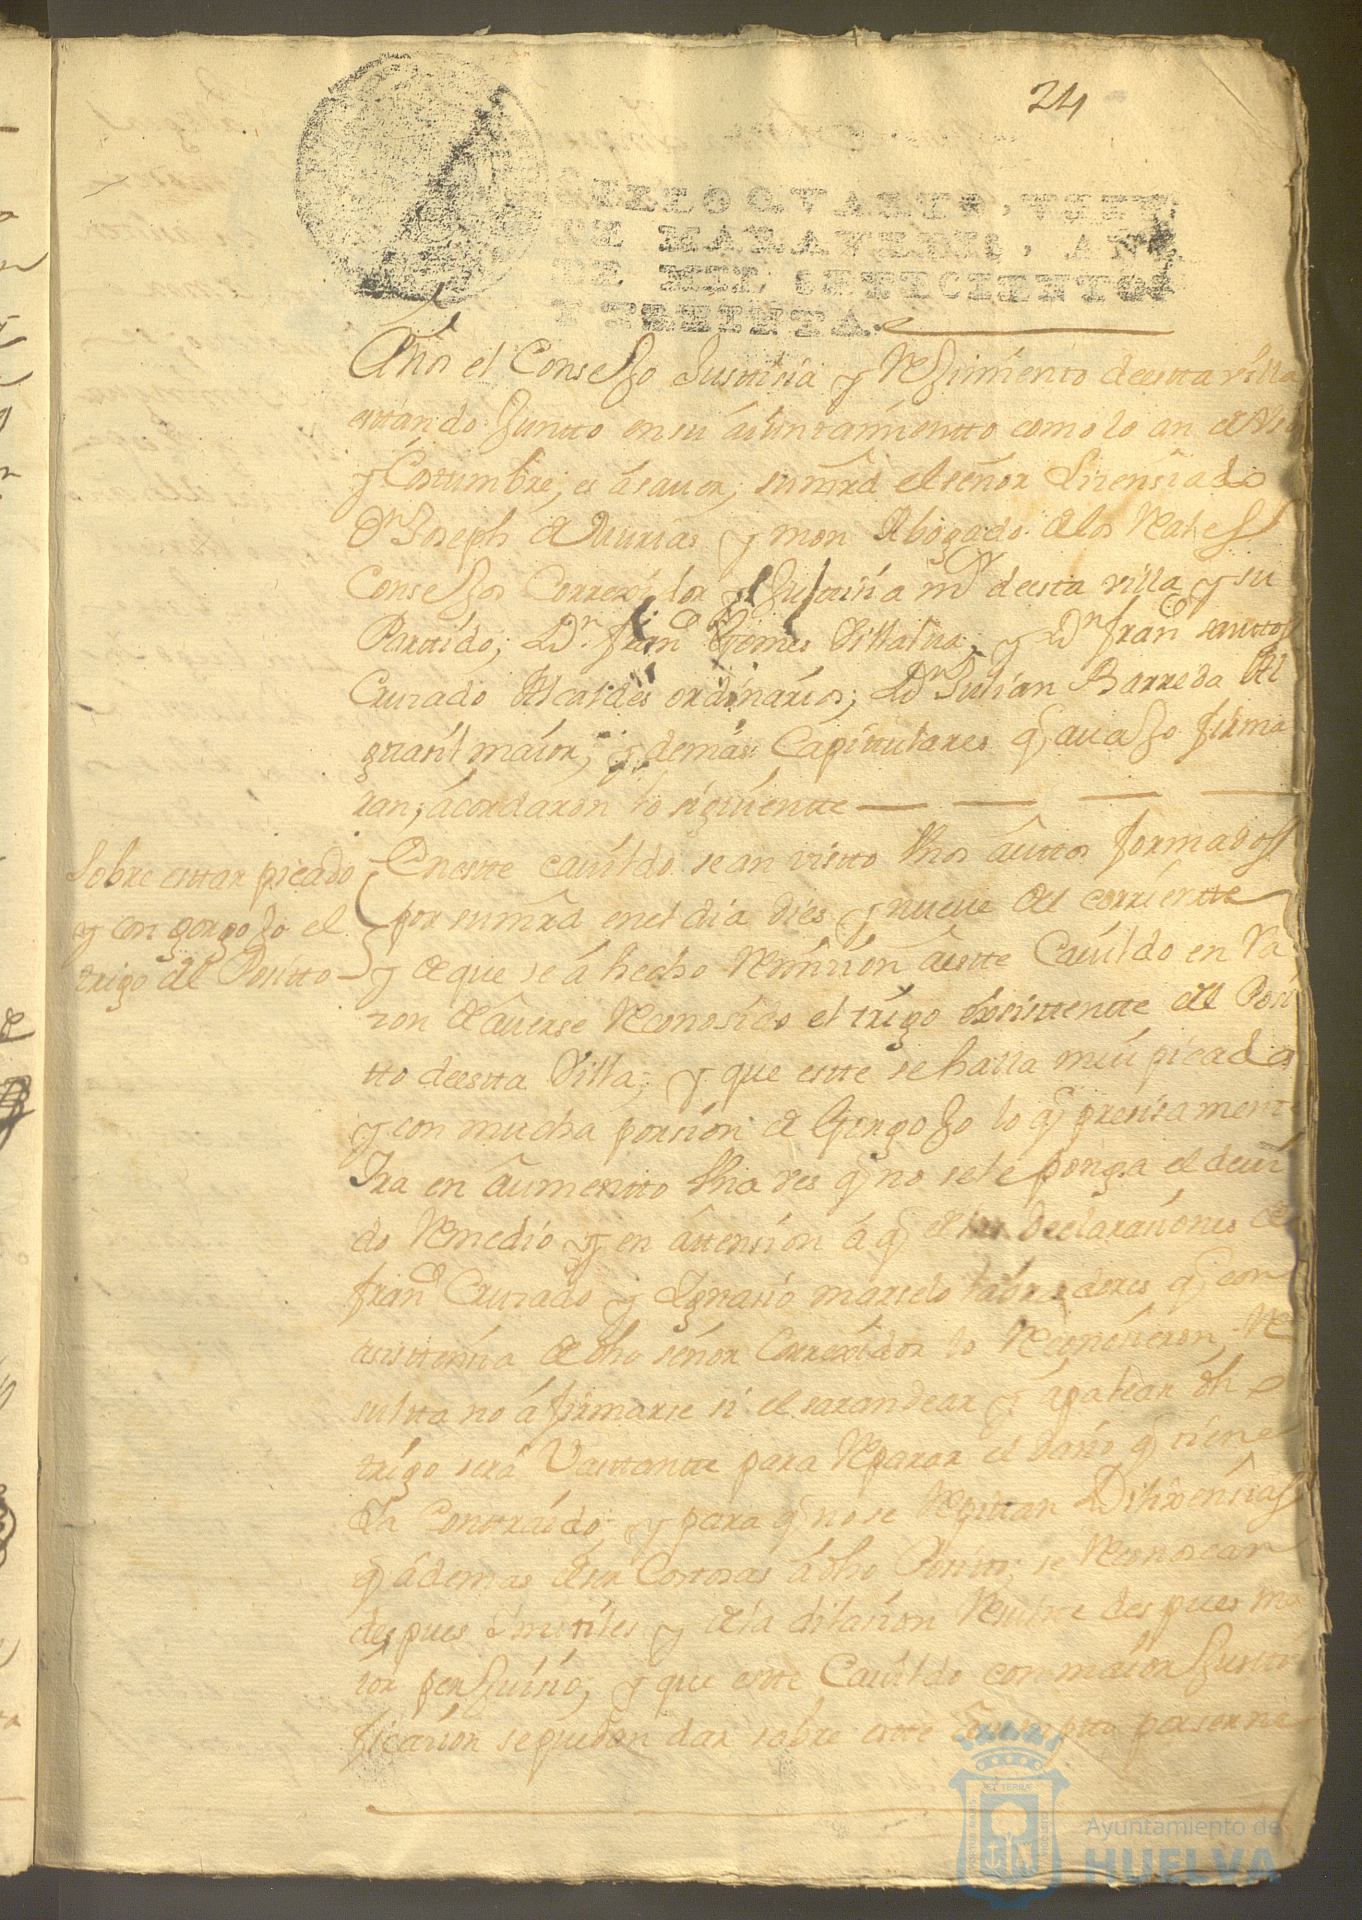 24
SELLO QVARTO, VEIN
TE MARAVEDIS, AÑO
DE MIL SETECIENTOS
Y TREINTA.
el Consejo Justicia y Rejimiento deestta villa
esttando Juntto en su áiunttamientto como lo an de Vso
y Costtumbre, es ásauer, sumrd el señor Lizensiado
Dn Joseph de Murias y mon Abogado de los Reales
Consejos Correxidor y Justtisia mr deesta villa y su
Parttido; Dn. Franco Gomes Villalua, y Dn franco santtos
Cruzado Alcaldes ordinarios; Dn Julian Barreda Al
guasil maior, y demás Capittulares q auajo firma
ran, ácordaron lo siguientte
Sobre esttar picado
y con gorgojo el
trigo del Positto
En estte cauildo se an vistto Vnos áuttos formados
por sumrd en el dia dies y nueue del corrientte
y de que se á hecho Remision áestte Cauildo en Ra
zon de áuerse Reconosido el trigo existtentte del Posi
tto deestta Villa, y que estte se halla mui picado
y con mucha porsion de Gorgojo lo q presisament
Ira en áumentto Vna ves q no se le ponga el deui
do Remedio y en áttension á q de las Declarasiones de
franco Cruzado y Ignasio marselo labradores q con
asisttensia de dho señor Correxidor lo Reconosieron, Re
sultta no áfirmarse si el sarandear y ápalear dho
trigo será Vasttantte para Reparar el daño q tiene
Ia Conttraido, y para q no se Repittan Dilixensias
q ádemas de ser Costosas á dho Positto, se Reconoscan
despues inutiles y de la dilasion Resultte despues ma
ior perjuisio, y que estte Cauildo con maior Justti
ficasion se puedan dar sobre estte
Ayuntamiento de
HUELVA